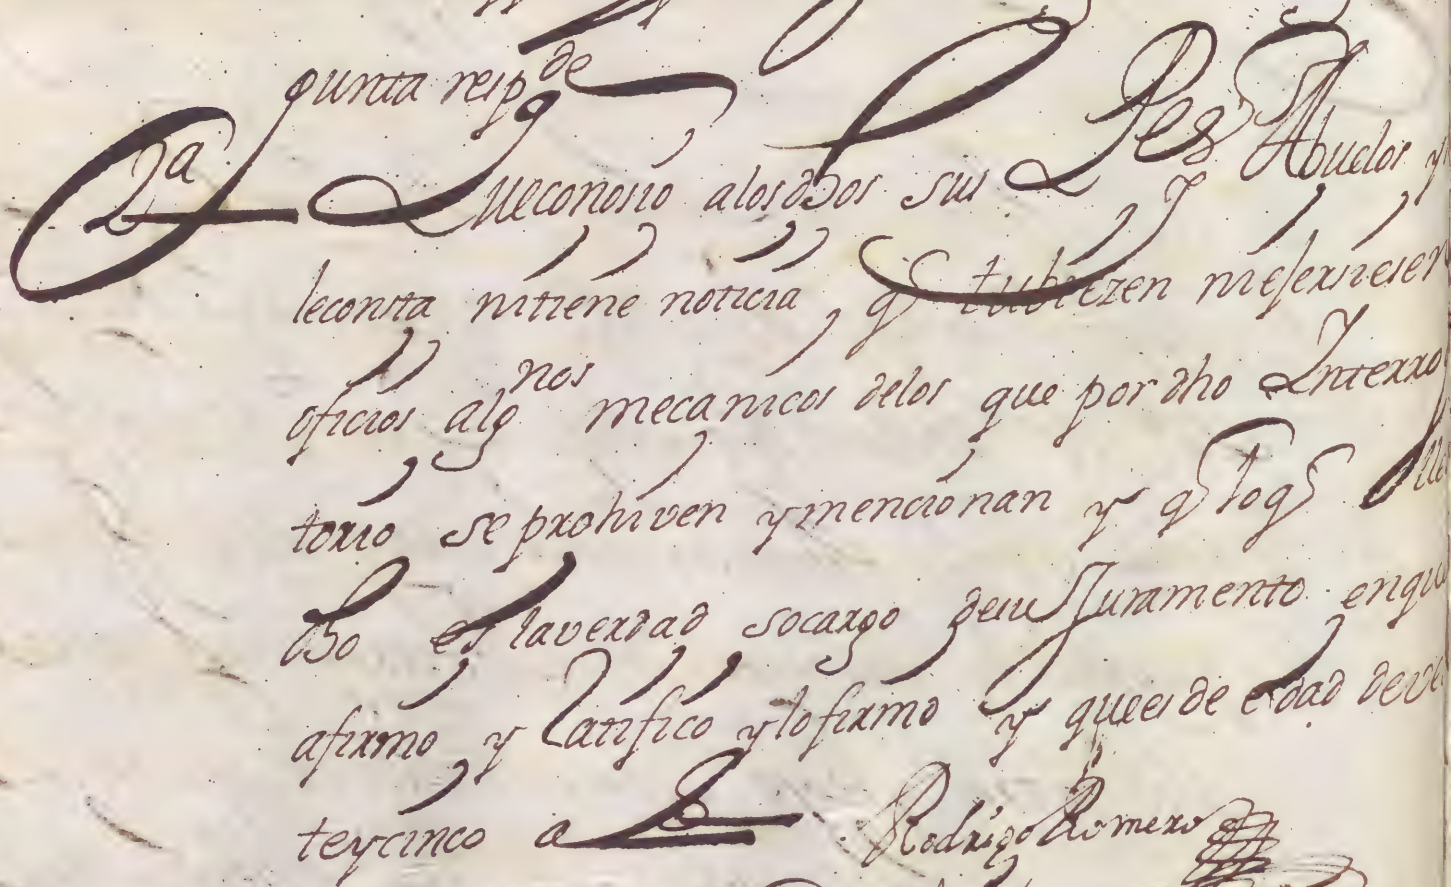 gunta resp.de
2a Que conosio a los dhos sus Pes. Abuelos y
le consta ni tiene noticia qe tubiezen ni esersiesen
oficios algnos mecanicos delos que por dho Interro
torio se prohiven y mencionan y q lo q lleba
dho es la verdad so cargo de su Juramento en que
afirmo y Ratifico y lo firmo y que es de edad de ve
te y cinco a
Rodrigo Romero